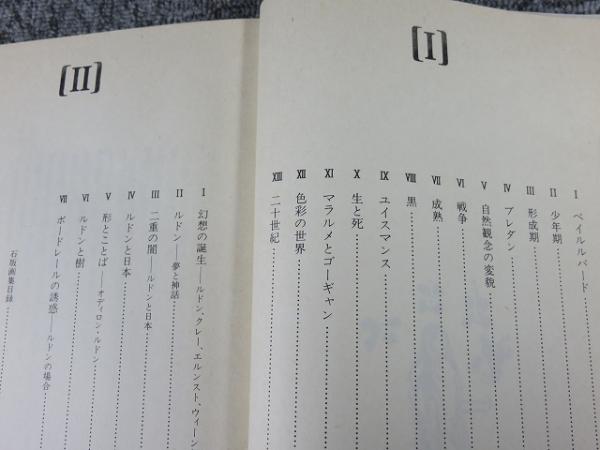 [I]
I ペイルルバード
II 少年期
III 形成期
IV ブレダン
V 自然観念の変貌
VI 戦争
VII 成熟
VIII 黒
IX ユイスマンス
X 生と死
XI マラルメとゴーギャン
XII 色彩の世界
XIII 二十世紀
[II]
I 幻想の誕生——ルドン、クレー、エルンスト、ウィーン
II ルドン——夢と神話
III 二重の闇——ルドンと日本
IV ルドンと日本
V 形とことば——オディロン・ルドン
VI ルドンと樹
VII ボードレールの誘惑——ルドンの場合
石版画集目録